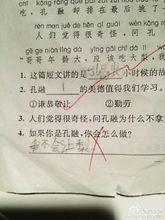 吃，孔融却挨在最后挑了一
rén men jué de hěn qí guài wèn kǒng
人们觉得很奇怪，问孔
gē ge nián líng dà yīng gāi chī dà
“哥哥年龄大，应该吃大梨，我
1. 这篇短文讲的是 小时候的故
2. 孔融 的美德值得我们学习。
①谦恭敬让 ②勤劳
3. 人们觉得很奇怪，问孔融为什么不拿
4. 如果你是孔融，你会怎么做？
我不会让梨